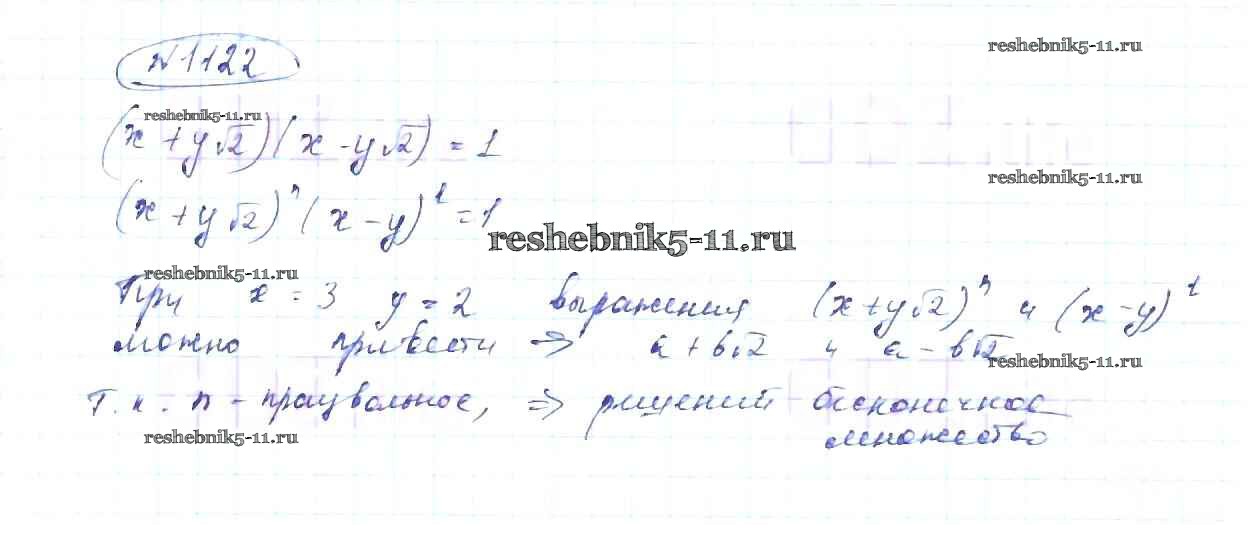 №1122
reshebnik5-11.ru
reshebnik5-11.ru
(x+y√2)(x-y√2)=1
reshebnik5-11.ru
(x+y√2)ⁿ(x-y)¹=1
reshebnik5-11.ru
reshebnik5-11.ru
При x=3 y=2 выражения (x+y√2)ⁿ и (x-y)¹
можно привести => a+b√2 и a-b√2
reshebnik5-11.ru
Т.к. n - працвольное, => рищений бесконечное
reshebnik5-11.ru
множество